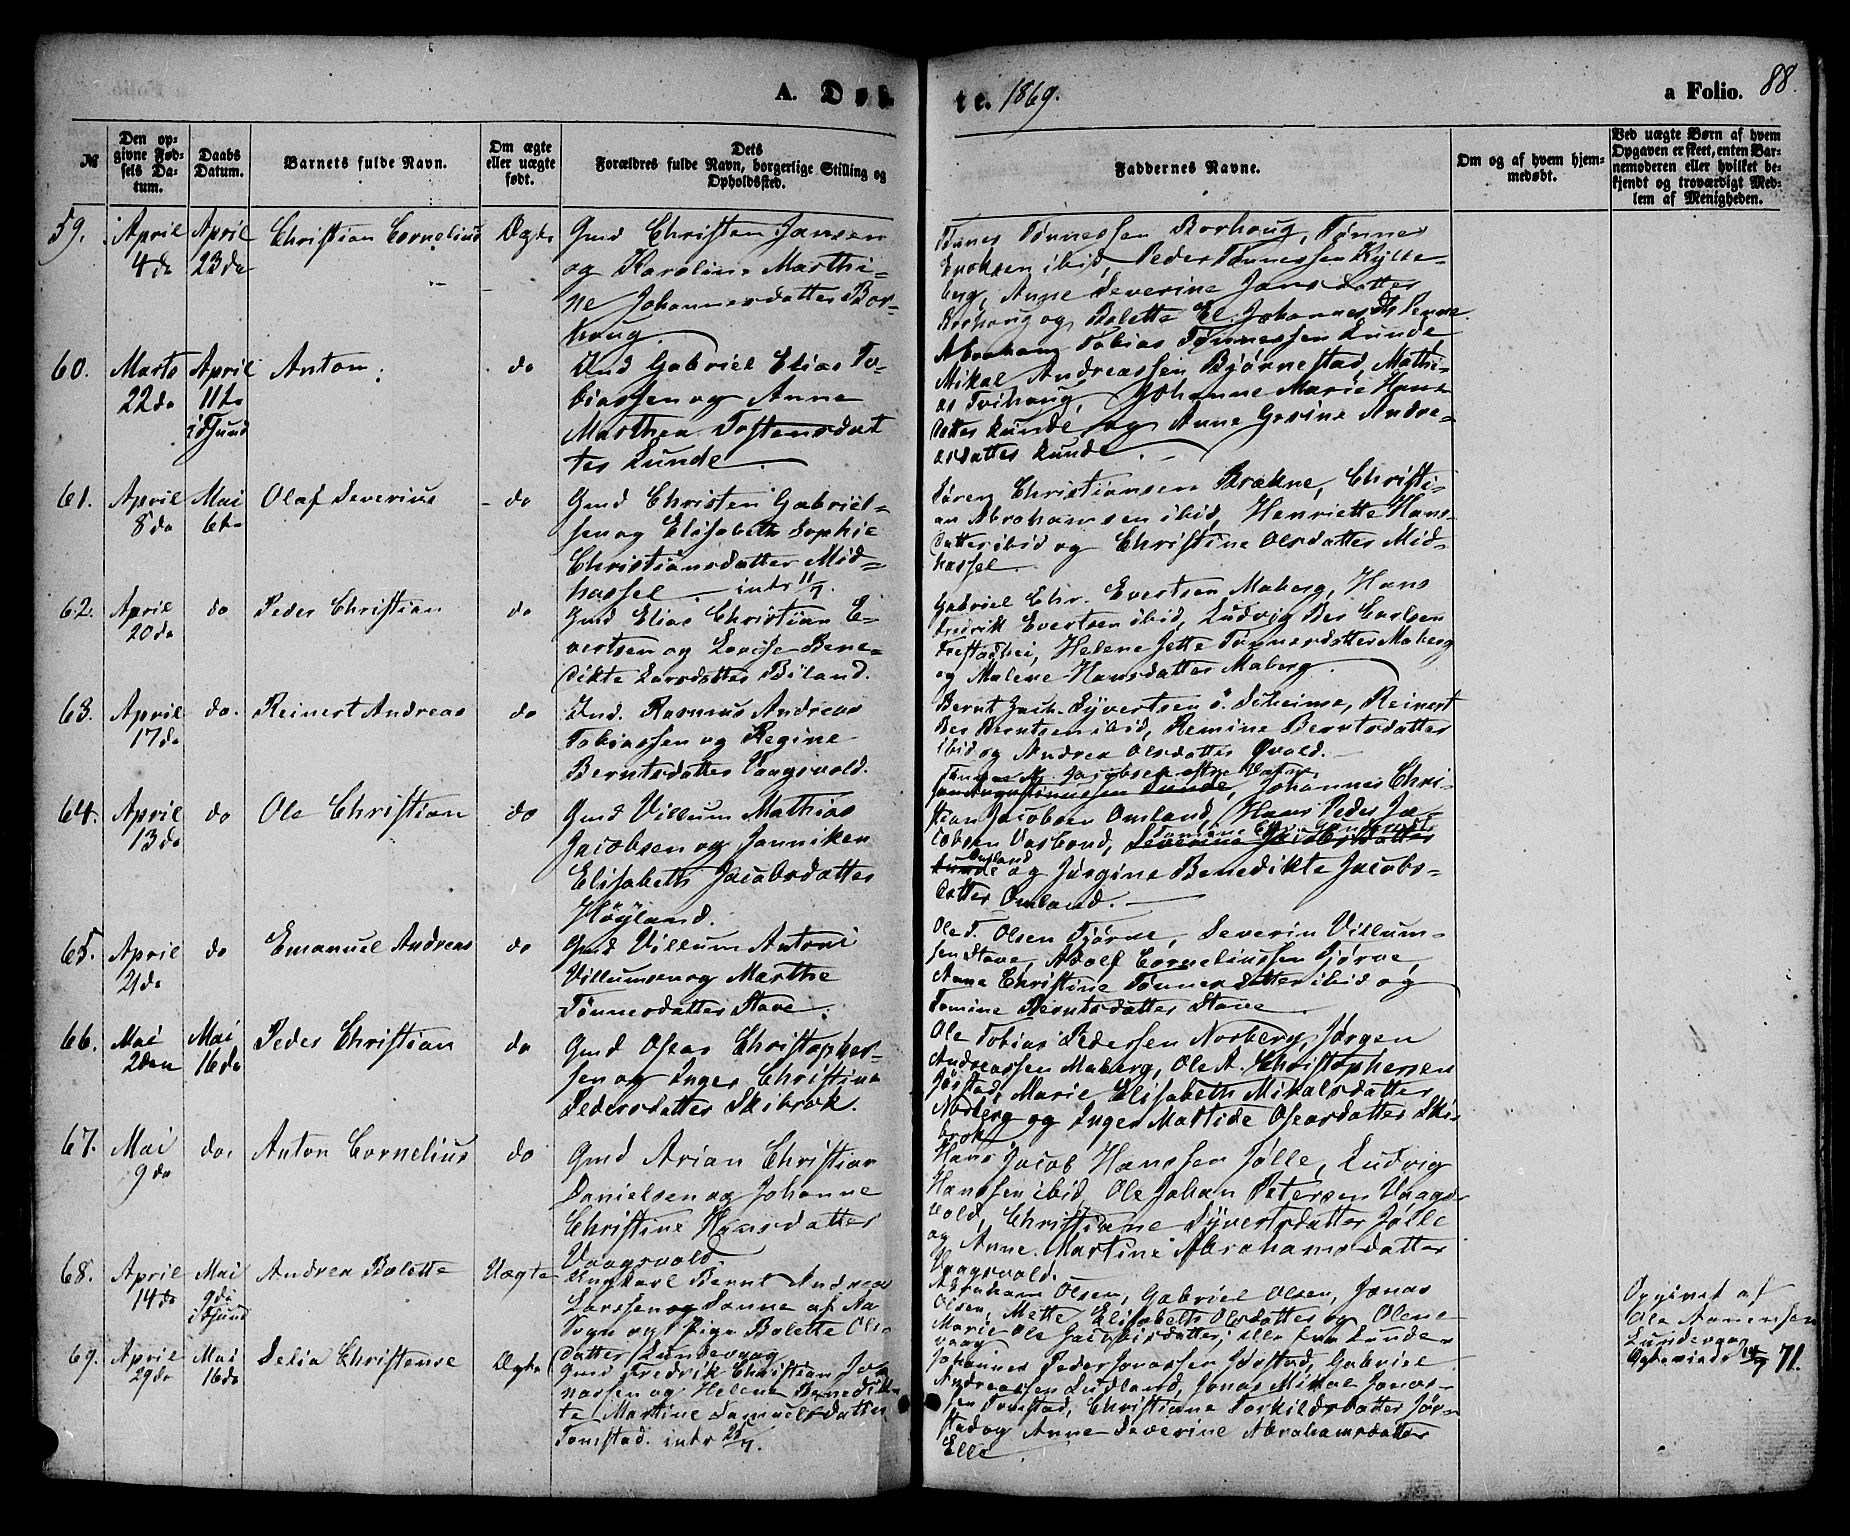 A. Døb
te. 1869.
a Folio. 88.
№
Den op-
givne Fød-
sels Da-
tum.
Daabs
Datum.
Barnets fulde Navn.
Om ægte
eller uægte
født.
Dets
Forældres fulde Navn, borgerlige Stilling og
Opholdssted.
Faddernes Navne.
Om og af hvem hjem-
medøbt.
Ved uægte Børn af hvem
Opgaven er skeet, enten Bar-
nemoderen eller hvilket be-
kjendt og troværdigt Med-
lem af Menigheden.
59.
April
4de
April
23de
Christian Cornelius
Ægte
Gmd Christen Jansen
og Karoline Marthi-
ne Johannesdatter Bor-
houg.
Tønnes Tønnessen Borhoug, Tønnes
ibid, Peder Tønnessen Kylle-
berg, Anne Severine Jansdatter
Borhoug og Bolette El. Johannesdtr Penne.
60.
Marts
22de
April
11te
i Hjund
Anton
do
Ind Gabriel Elias To-
biassen og Anne
Marthea Tostensdat
ter Lunde
Abraham Tobias Tønnessen Lunde
Mikal Andreassen Bjørnestad, Mathi-
as Tvihoug, Johanne Marie Hans
datter Lunde og Anne Gesine Andre-
asdatter Lunde.
61.
April
8de
Mai
6te
Olaf Severius
do
Gmd Christen Gabriel-
sen og Elisabeth Sophie
Christiansdatter Mid-
hassel intr 11/7.
Søren Christiansen Brækne, Christi-
an Abrahamsen ibid, Henriette Hans-
datter ibid og Christine Olsdatter Mid-
hassel.
62.
April
20de
do
Peder Christian
do
Gmd Elias Christian E-
vertsen og Lovise Bene-
dikte Larsdatter Biland.
Gabriel Chr. Evertsen Maberg, Hans
Fredrik Evertsen ibid, Ludvig Ber Carlsen
Frestadhei, Helene Jette Tønnesdatter Maberg
og Malene Hansdatter Maberg.
63.
April
17de
do.
Reinert Andreas
do
Ind. Rasmus Andreas
Tobiassen og Regine
Berntsdatter Vaagsvold.
Bernt Zach. Syvertsen ö. Scheime, Reinert
Ber Berntsen ibid, Remine Berntsdatter
ibid og Andrea Olsdatter Qvold.
64.
April
13de
do
Ole Christian
do
Gmd Villum Mathias
Jacobsen og Jonniken
Elisabeth Jacobsdatter
Høyland.
Jacobsen
Lunde, Johannes Chri-
stian Jacobsen Omland, Hans Peder Ja-
cobsen Vasbond, Severine Jacobsdatter
Omland
Lunde og Jørgine Benedikte Jacobs-
datter Omland.
65.
April
21de
do
Emanuel Andreas
do
Gmd Villum Antoni
Villumsen og Marthe
Tønnesdatter Stave.
Ole T. Olsen Tjørve, Severin Villum-
sen Stave, Adolf Corneliussen Tjørve,
Anne Christine Tønnesdatter ibid og
Tomine Berntsdatter Stave
66.
Mai
2den
Mai
16de
Peder Christian
do
Gmd Oseas Christopher-
sen og Inger Christine
Pedersdatter Skibrok.
Ole Tobias Pedersen Norberg, Jørgen
Andreassen Maberg, Ole A. Christophersen
Jøstad, Marie Elisabeth Mikalsdatter
Norberg og Inger Matilde Oseasdatter Ski-
brok
67.
Mai
9de
do.
Anton Cornelius
do
Gmd Arian Christian
Danielsen og Johanne
Christine Hansdatter
Vaagsvold.
Hans Jacob Hanssen Jølle, Ludvig
Hanssen ibid, Ole Johan Petersen Vaags-
vold, Christiane Syvertsdatter Jølle
og Anne Martine Abrahamsdatter
Vaagsvold.
68.
April
14de
Mai
9de
i Hjund
Andrea Bolette
Uægte
Ungkarl Bernt Andreas
Larssen og Sonne af Aa
Sogn og Pige Bolette Ols-
datter Lundevaag
Abraham Olsen, Gabriel Olsen, Jonas
Olsen, Mette Elisabeth Olsdatter og Olene
Marie Ole Jacobsdatter, alle fra Lunde-
vaag
Opgivet af
Ole Aanensen
Lundevaag
71.
69.
April
29de
Mai
16de
Selia Christense
Ægte
Gmd Fredrik Christian Jo-
nassen og Helene Benedik-
te Martine Samuelsdatter
Tomstad. intr 25/7.
Johannes Peder Jonassen Jøstad, Gabriel
Andreassen Ludland, Jonas Mikal Jonas-
sen Tomstad, Christiane Torkildsdatter Jør-
stad og Anne Severine Abrahamsdatter
Elle